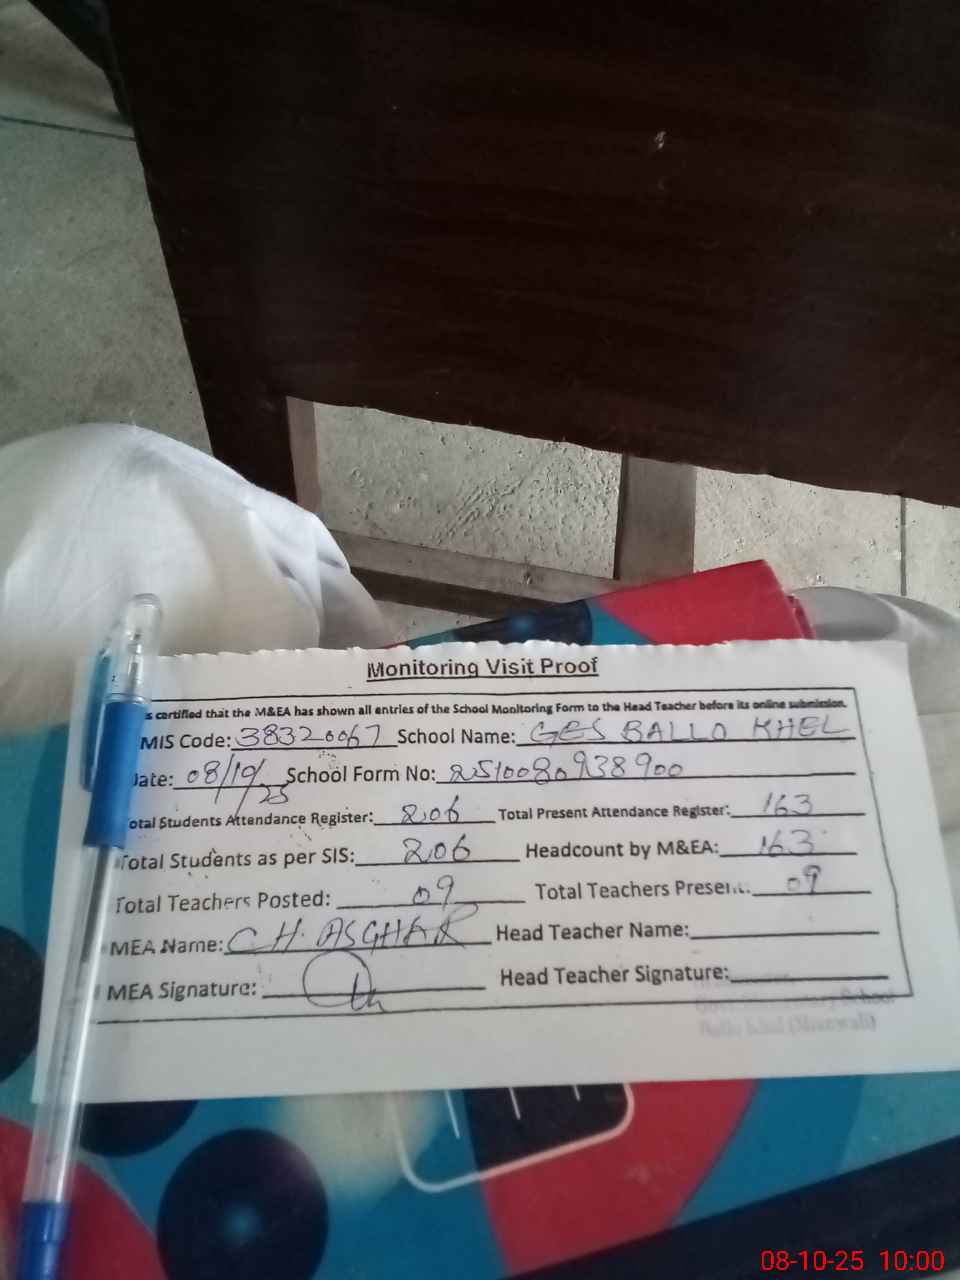 Monitoring Visit Proof
is certified that the M&EA has shown all entries of the School Monitoring Form to the Head Teacher before its online submission.
MIS Code: 38320067 School Name: GES BALLO KHEL
Date: 08/10/25 School Form No: 2510080938900
Total Students Attendance Register: 206 Total Present Attendance Register: 163
Total Students as per SIS: 206 Headcount by M&EA: 163
Total Teachers Posted: 09 Total Teachers Present: 09
MEA Name: CH. ASGHAR Head Teacher Name:
MEA Signature: Head Teacher Signature:
School
08-10-25 10:00